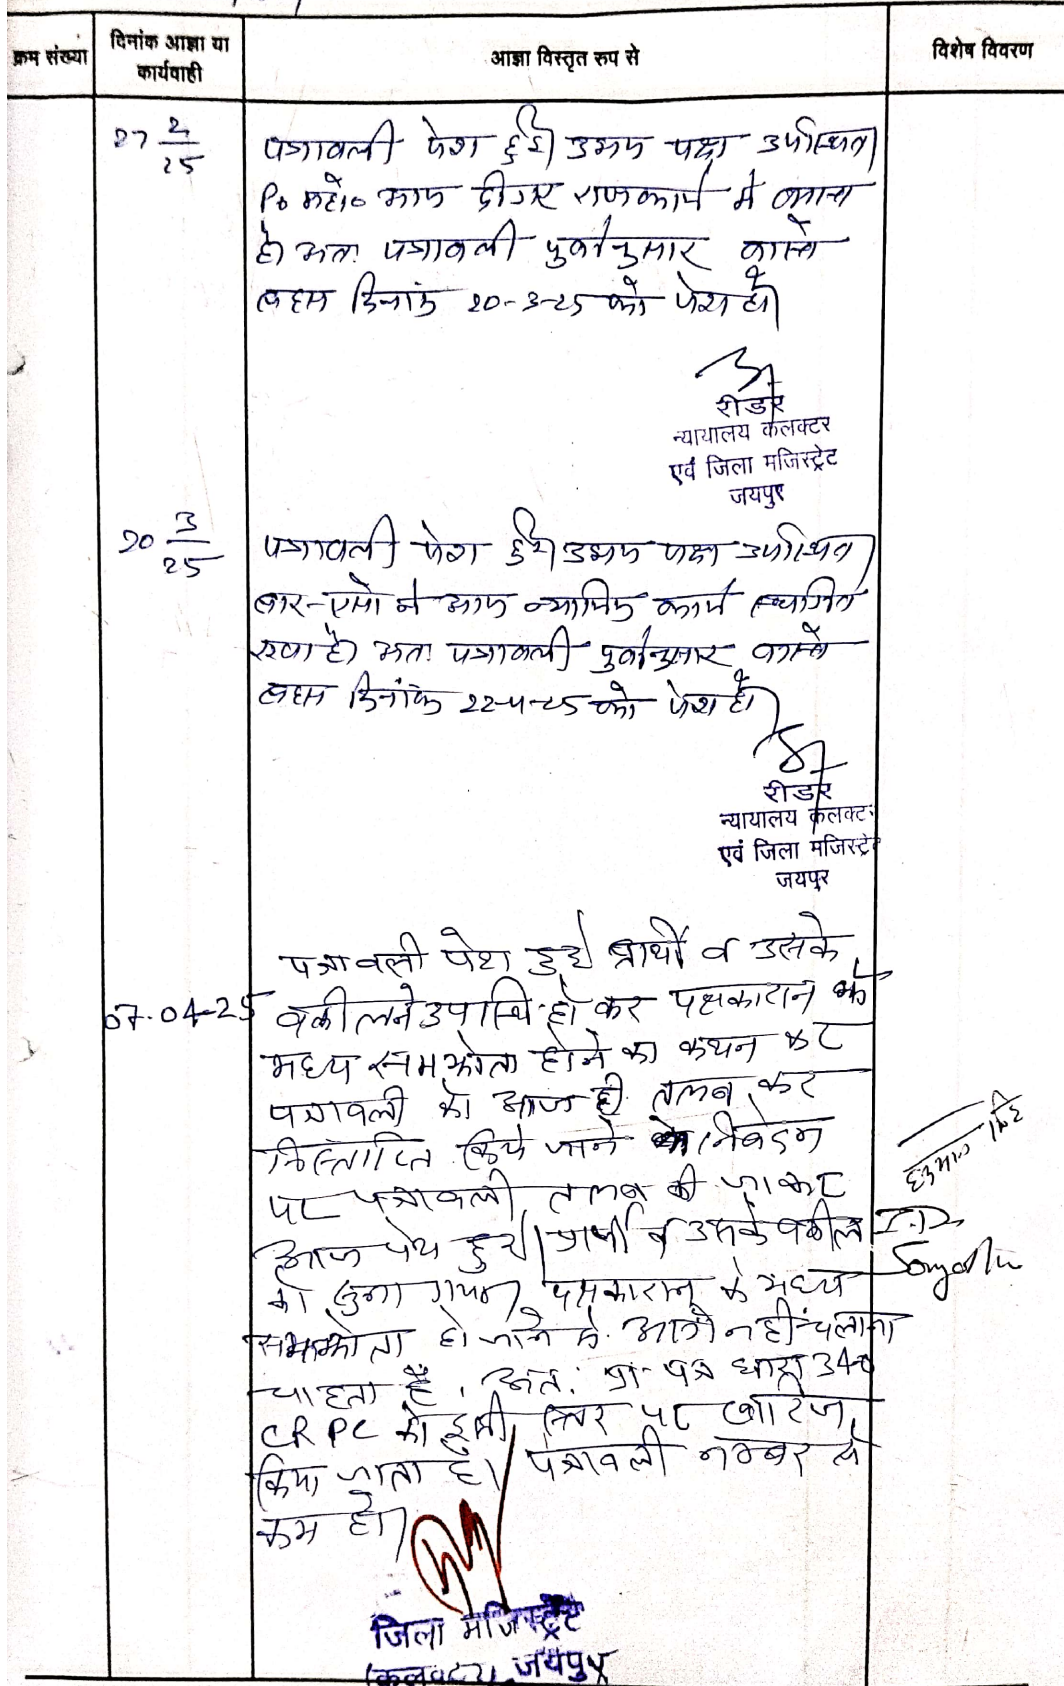 क्रम संख्या
दिनांक आज्ञा या
कार्यवाही
आज्ञा विस्तृत रुप से
विशेष विवरण
27 2/25
पत्रावली पेश हुई। उभय पक्ष उपस्थित।
P० महो० आज दीगर राजकार्य में व्यस्त
है। अतः पत्रावली पूर्वानुसार वास्ते
बहस दिनांक 20-3-25 को पेश हो।
रीडर
न्यायालय कलक्टर
एवं जिला मजिस्ट्रेट
जयपुर
20 3/25
पत्रावली पेश हुई। उभय पक्ष उपस्थित।
बार-एसो ने आज न्यायिक कार्य स्थगित
रखा है। अतः पत्रावली पूर्वानुसार वास्ते
बहस दिनांक 22-4-25 को पेश हो।
रीडर
न्यायालय कलक्ट
एवं जिला मजिस्ट्रेट
जयपुर
07-04-25
पत्रावली पेश हुई। प्रार्थी व उसके
वकील ने उपस्थि. हो कर पक्षकारान के
मध्य समझोता होने का कथन कर
पत्रावली को आज ही तलब कर
निस्तारित किये जाने का निवेदन
पर पत्रावली तलब की जाकर
आज पेश हुई। प्रार्थी व उसके वकील
को सुना गया। पक्षकारान के मध्य
समझोता हो जाने से आगे नहीं चलाना
चाहता है। अतः प्रा. पत्र धारा 340
CRPC को इसी स्तर पर खारिज
किया जाता है। पत्रावली नम्बर से
कम हो।
हनुमान सिंह
I.D.
जिला मजिस्ट्रेट
(कलक्टर) जयपुर